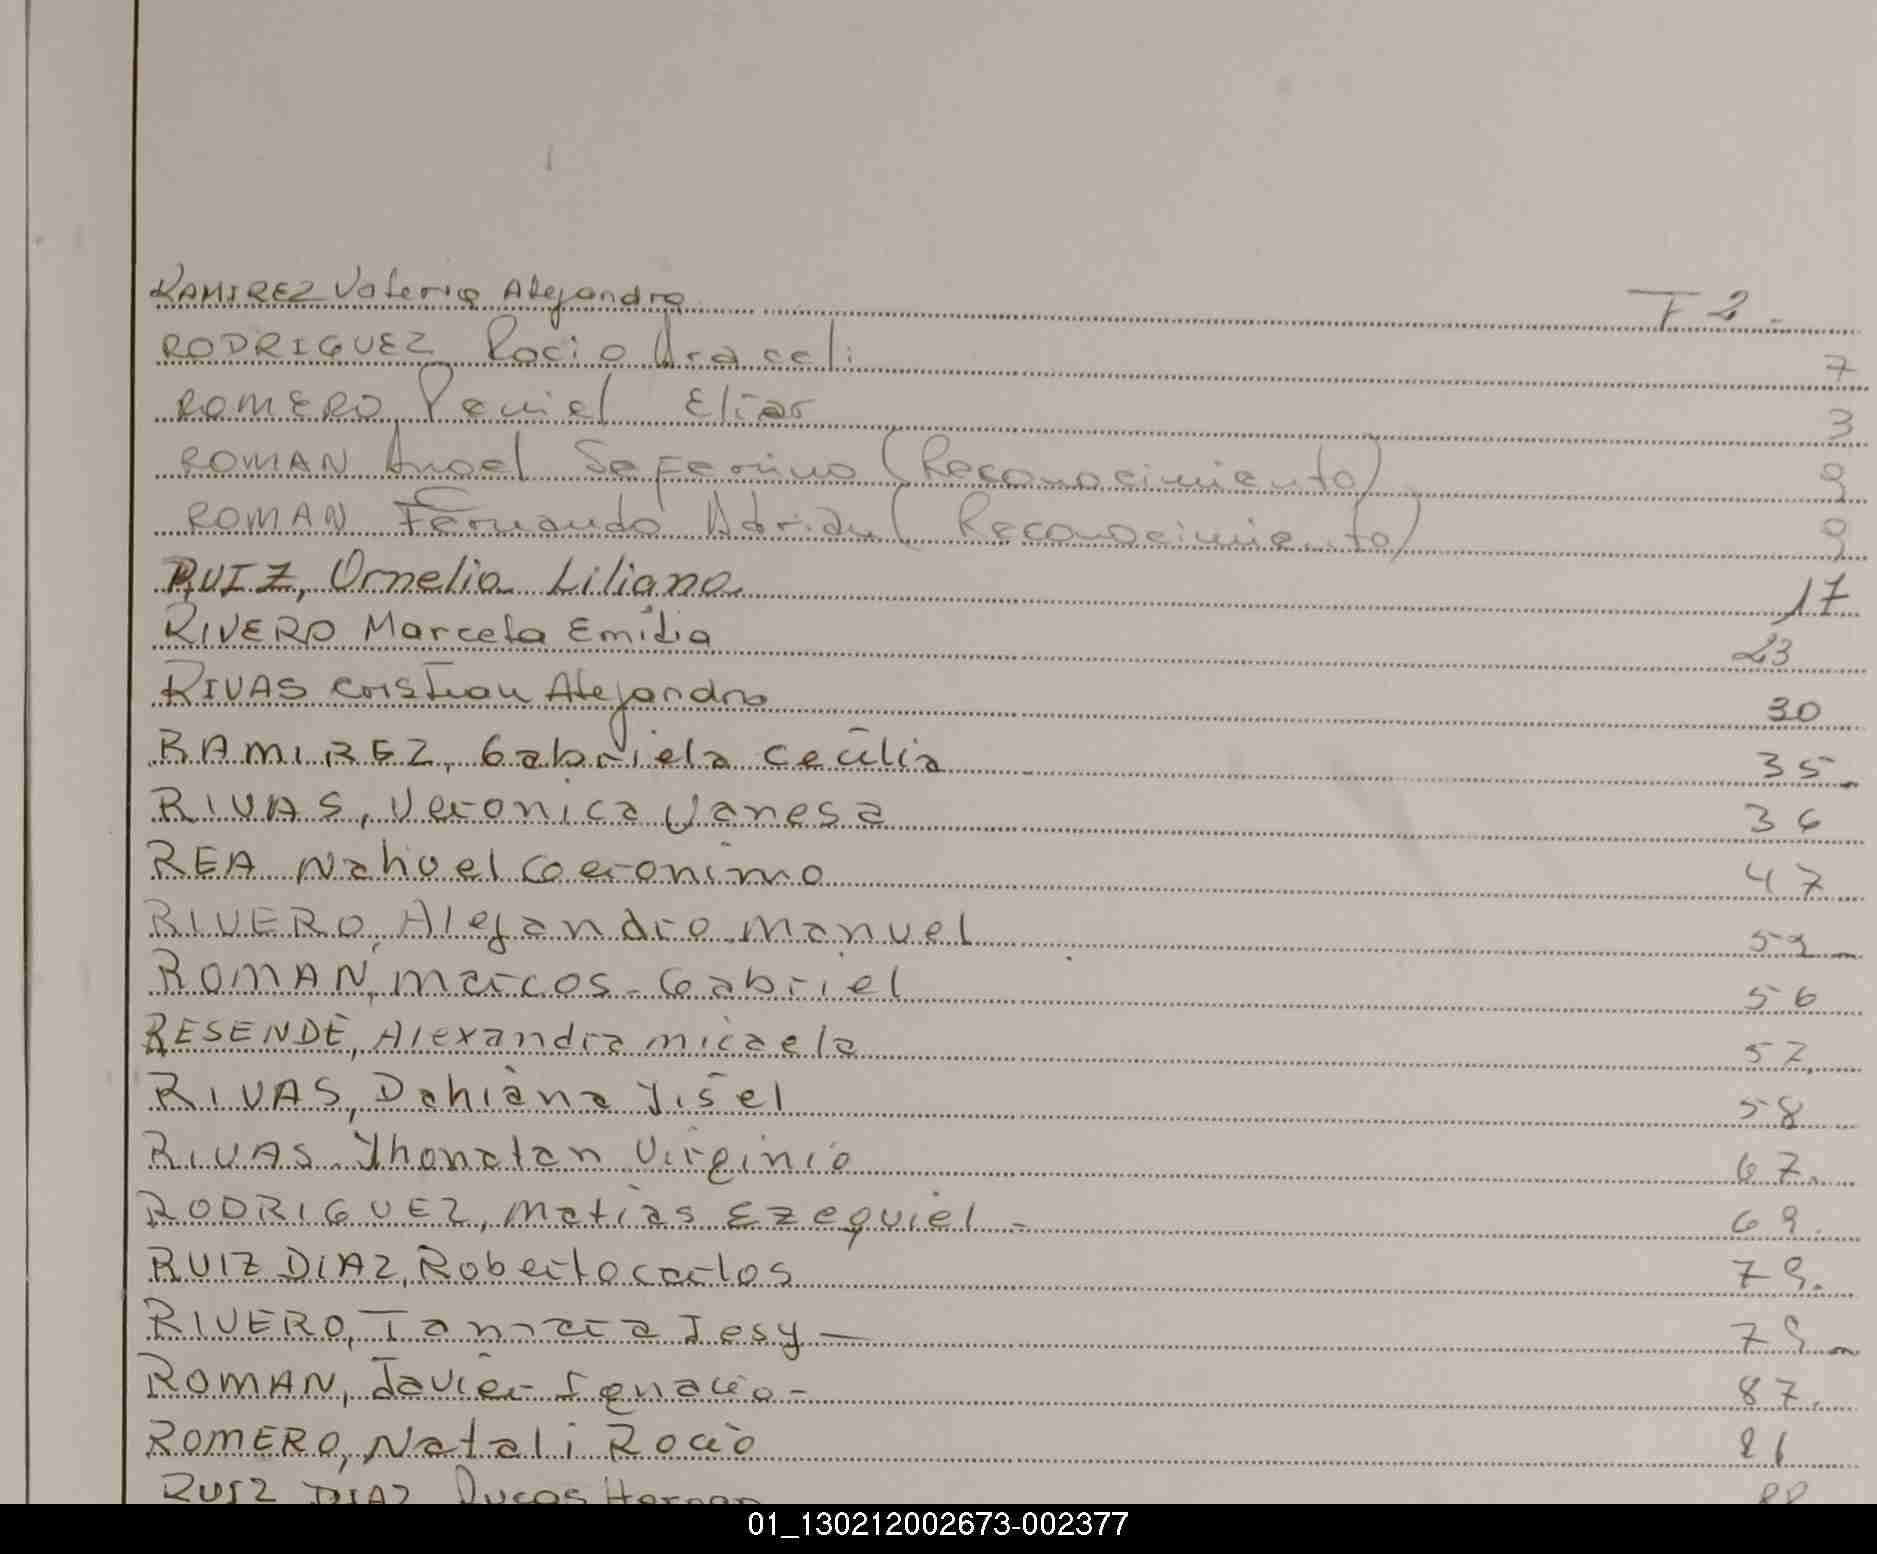 RAMIREZ Valeria Alejandra F 2 -
RODRIGUEZ Rocio Araceli 7
ROMERO Peniel Eliar 3
ROMAN Angel Seferino (Reconocimiento) 9
ROMAN Fernando Adrian (Reconocimiento) 9
RUIZ, Ornelia Liliana 17
RIVERO Marcela Emilia 23
RIVAS Cristian Alejandro 30
RAMIREZ, Gabriela Cecilia 35-
RIVAS, Veronica Vanesa 36
REA Nahuel Geronimo 47
RIVERO, Alejandro Manuel
ROMAN, Marcos Gabriel 56
RESENDE, Alexandra micaela 57.
RIVAS, Dahiana Yisel 58
RIVAS Jhonatan Virginio 67.
RODRIGUEZ, Matias Ezequiel - 69.
RUIZ DIAZ, Roberto carlos 79.
RIVERO, Tamara Jesy - 79 -
ROMAN, Javier Ignacio - 87.
ROMERO, Natali Rocio
RUIZ DIAZ Hernan 88
01_130212002673-002377